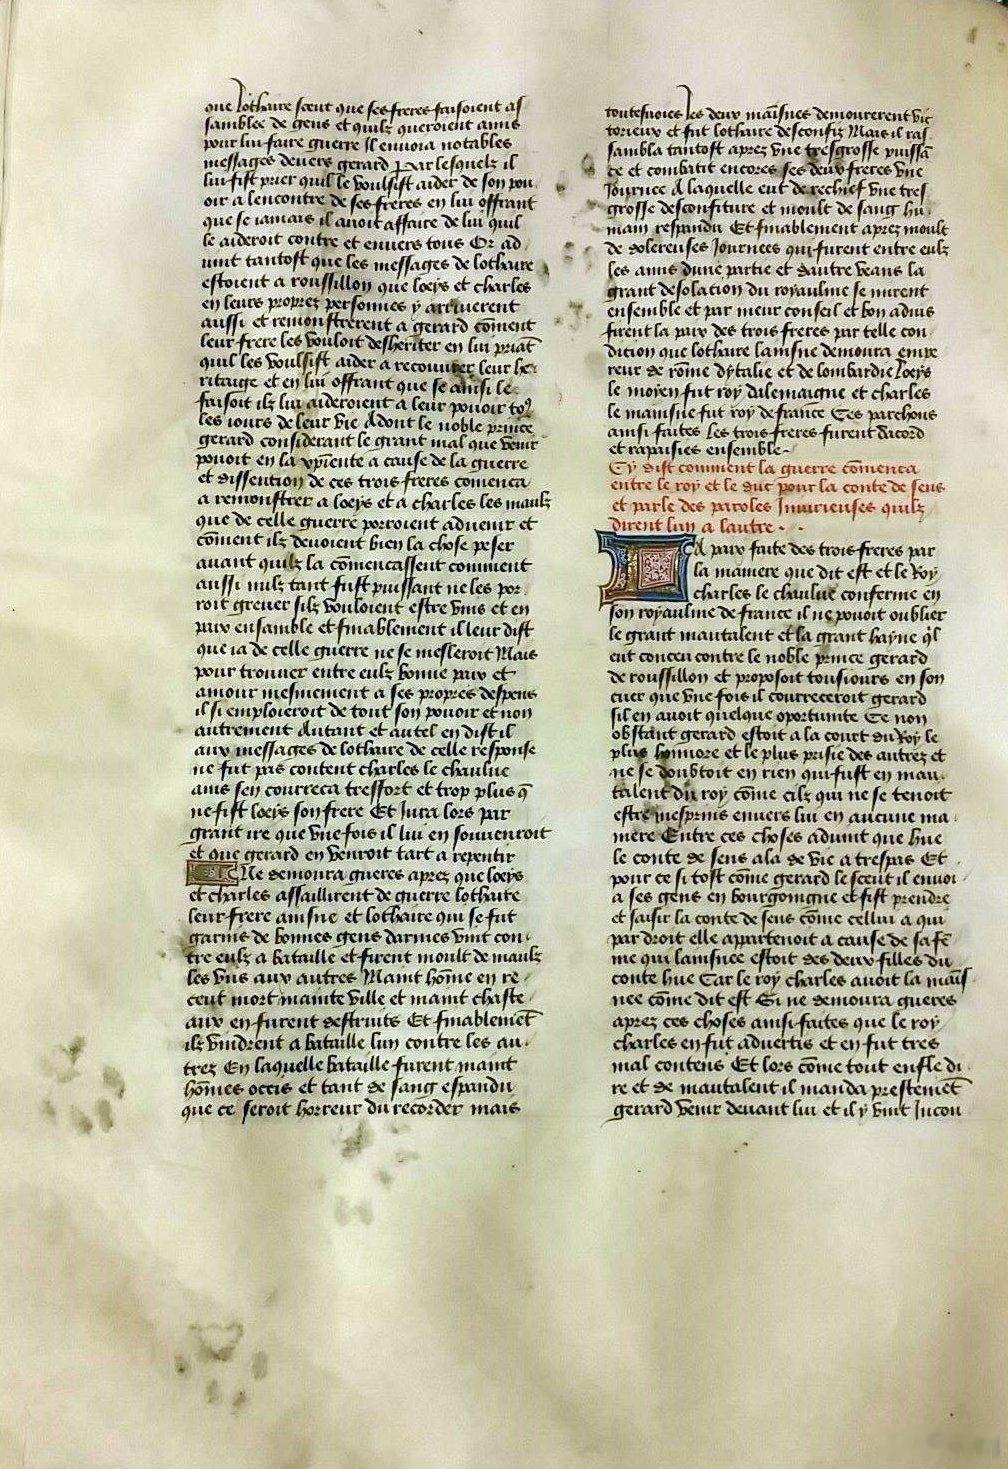 que lothaire sceut que ses freres faisoient as
samblee de gens et quilz queroient amis
pour lui faire guerre Il envoia notables
messages devers gerard par lesquelz il
lui fist prier quil le voulsist aider de son pou
oir a lencontre de ses freres en lui offrant
que se iamais il auoit affaire de lui quil
le aideroit contre et enuers tous Or ad
uint tantost que les messages de lothaire
estoient a roussillon que loeys et charles
en leurs propres personnes y arriuerent
aussi et remonstrerent a gerard cōment
leur frere les vouloit desheriter en lui priāt
quil les voulsist aider a recouurer leur he
ritaige et en lui offrant que se ainsi le
faisoit ilz lui aideroient a leur pouoir to9
les iours de leur vie Adont le noble prince
gerard considerant le grant mal que venir
pouoit en la xp̄iente a cause de la guerre
et dissention de ces trois freres comenca
a remonstrer a loeys et a charles les maulz
que de celle guerre porroient aduenir et
cōment ilz deuoient bien la chose peser
auant quilz la cōmencassent comment
aussi nulz tant fust puissant ne les por
roit greuer silz vouloient estre vnis et en
paix ensamble et finablement il leur dist
que ia de celle guerre ne se mesleroit Mais
pour trouuer entre eulz bonne paix et
amour mesmement a ses propres despens
il si emploieroit de tout son pouoir et non
autrement Autant et autel en dist il
aux messages de lothaire de celle response
ne fut pas content charles le chaulue
ains sen courreca tresfort et trop plus q̄
ne fist loeys son frere Et iura lors par
grant ire que vne fois il lui en souuenroit
et que gerard en venroit tart a repentir
Ne demoura gueres aprez que loeys
et charles assaillirent de guerre lothaire
leur frere aisne et lothaire qui se fut
garnis de bonnes gens darmes vint con
tre eulz a bataille et firent moult de maulz
les vns aux autres Maint hōme en re
ceut mort mainte ville et maint chaste
aux en furent destruits Et finablemēt
ilz vindrent a bataille lun contre les au
trez En laquelle bataille furent maint
hōmes occis et tant de sang espandu
que ce seroit horreur du recorder mais
toutesuoies les deux maisnes demourerent vic
torieux et fut lothaire desconfiz Mais il ras
sambla tantost aprez vne tresgrosse puissā
ce et combatit encores ses deux freres vne
Journee A laquelle eut de rechief vne tres
grosse desconfiture et moult de sang hu
main respandu Et finablement aprez moult
de dolereuses Journees qui furent entre eulz
les amis dune partie et dautre veans la
grant desolation du royaulme se mirent
ensemble et par meur conseil et bon aduis
firent la paix des trois freres par telle con
dition que lothaire lainsne demoura empe
reur de rōme dytalie et de lombardie Loeys
le moyen fut roy dalemaigne et charles
le mainsne fut roy de france Ces parchons
ainsi faites les trois freres furent dacord
et rapaisies ensemble
Cy dist comment la guerre cōmenca
entre le roy et le duc pour la conte de sens
et parle des paroles Iniurieuses quilz
dirent lun a lautre
La paix faite des trois freres par
la maniere que dit est et le Roy
charles le chaulue conferme en
son royaulme de france il ne pouoit oublier
le grant mautalent et la grant hayne q̄l
eut conceu contre le noble prince gerard
de roussillon et proposoit tousiours en son
cuer que vne fois il courreceroit gerard
sil en auoit quelque oportunite Ce non
obstant gerard estoit a la court du Roy le
plus honnore et le plus prisie des autrez et
ne se doubtoit en rien qui fust en mau
talent du roy cōme cilz qui ne se tenoit
estre mesprins enuers lui en aucune ma
niere Entre ces choses aduint que hue
le conte de sens ala de vie a trespas Et
pour ce si tost cōme gerard le sceut il enuoi
a ses gens en bourgoingne et fist prendre
et saisir la conte de sens cōme cellui a qui
par droit elle appartenoit a cause de sa fē
me qui lainsnee estoit des deux filles du
conte hue Car le roy charles auoit la maīs
nee cōme dit est Si ne demoura gueres
aprez ces choses ainsi faites que le roy
charles en fut aduertis et en fut tres
mal contens Et lors cōme tout enfle di
re et de mautalent il manda prestemēt
gerard venir deuant lui et il y vint Incon